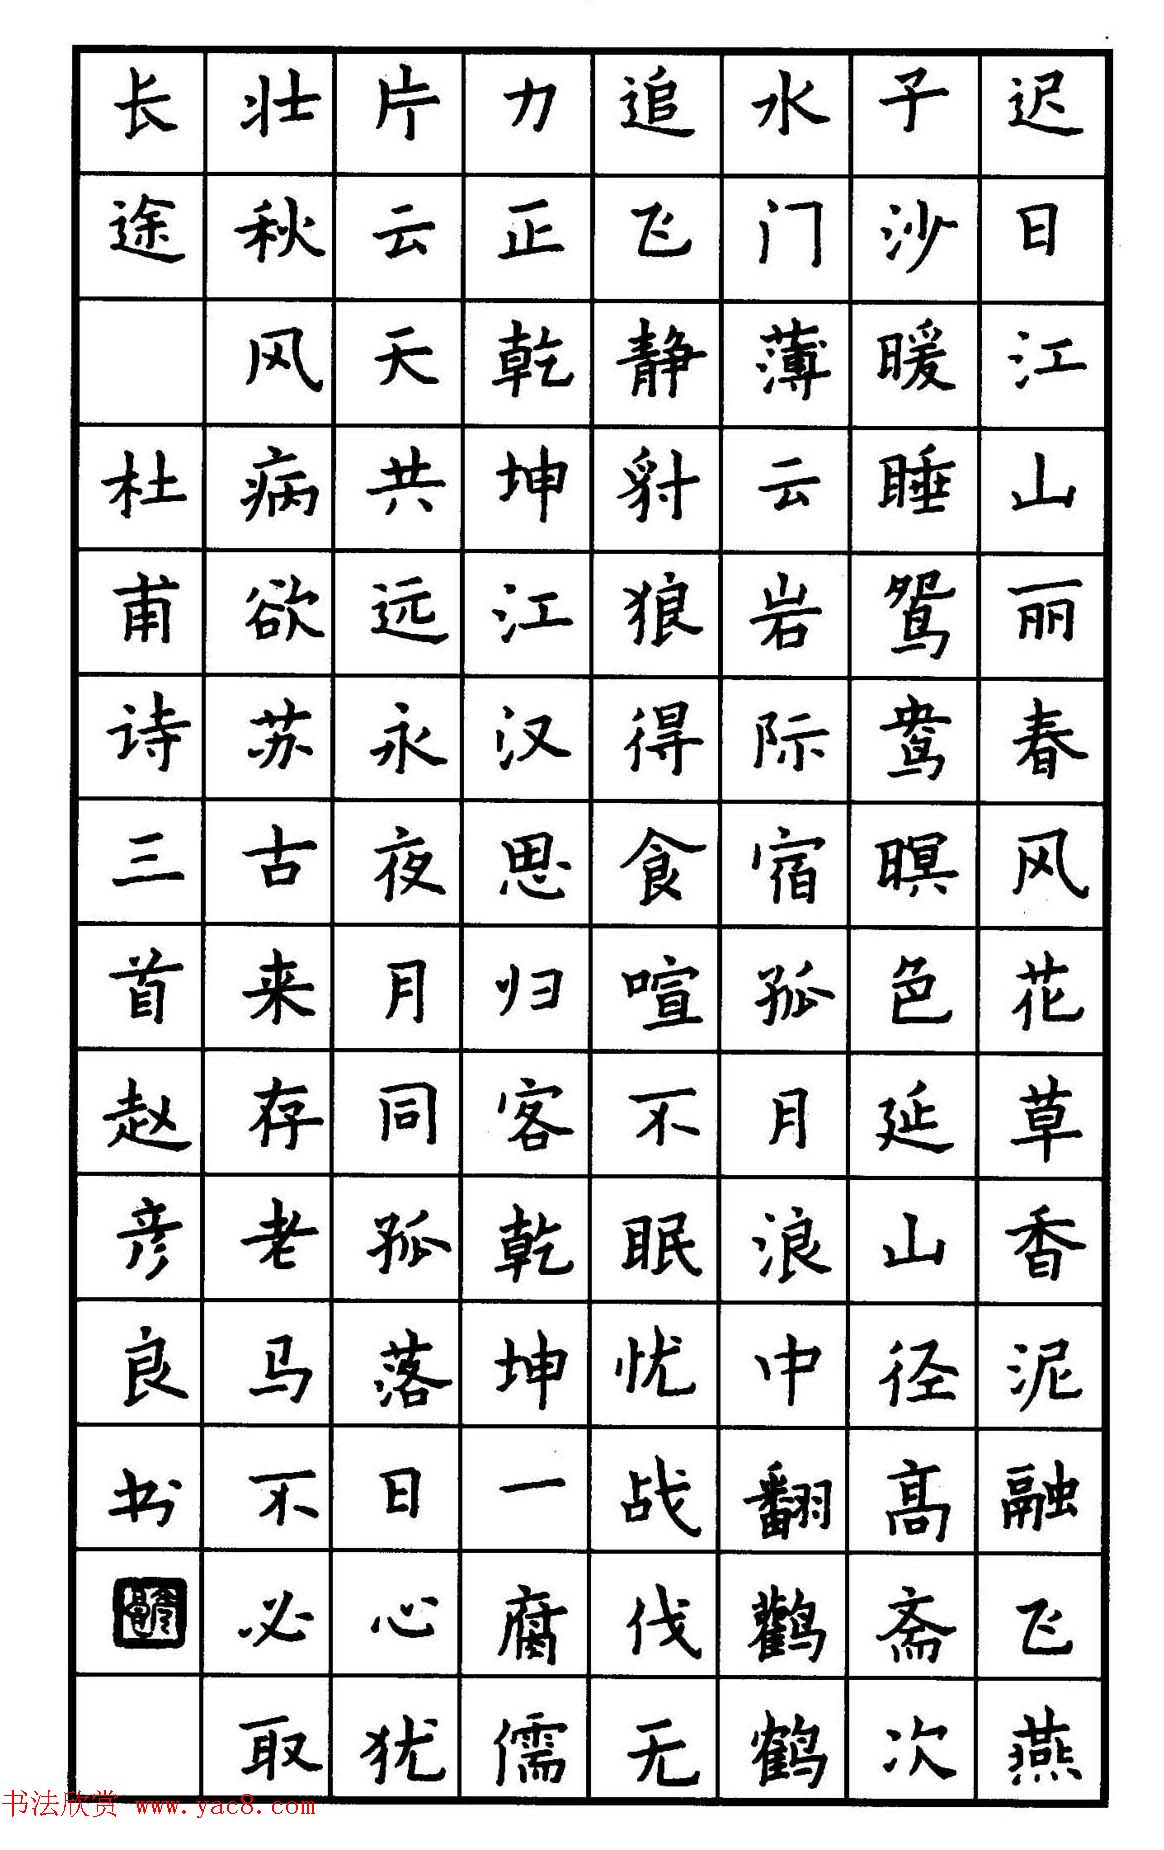 迟日江山丽春风花草香泥融飞燕
子沙暖睡鸳鸯暝色延山径高斋次
水门薄云岩际宿孤月浪中翻鹳鹤
追飞静豺狼得食喧不眠忧战伐无
力正乾坤江汉思归客乾坤一腐儒
片云天共远永夜月同孤落日心犹
壮秋风病欲苏古来存老马不必取
长途 杜甫诗三首赵彦良书
书法欣赏 www.yac8.com